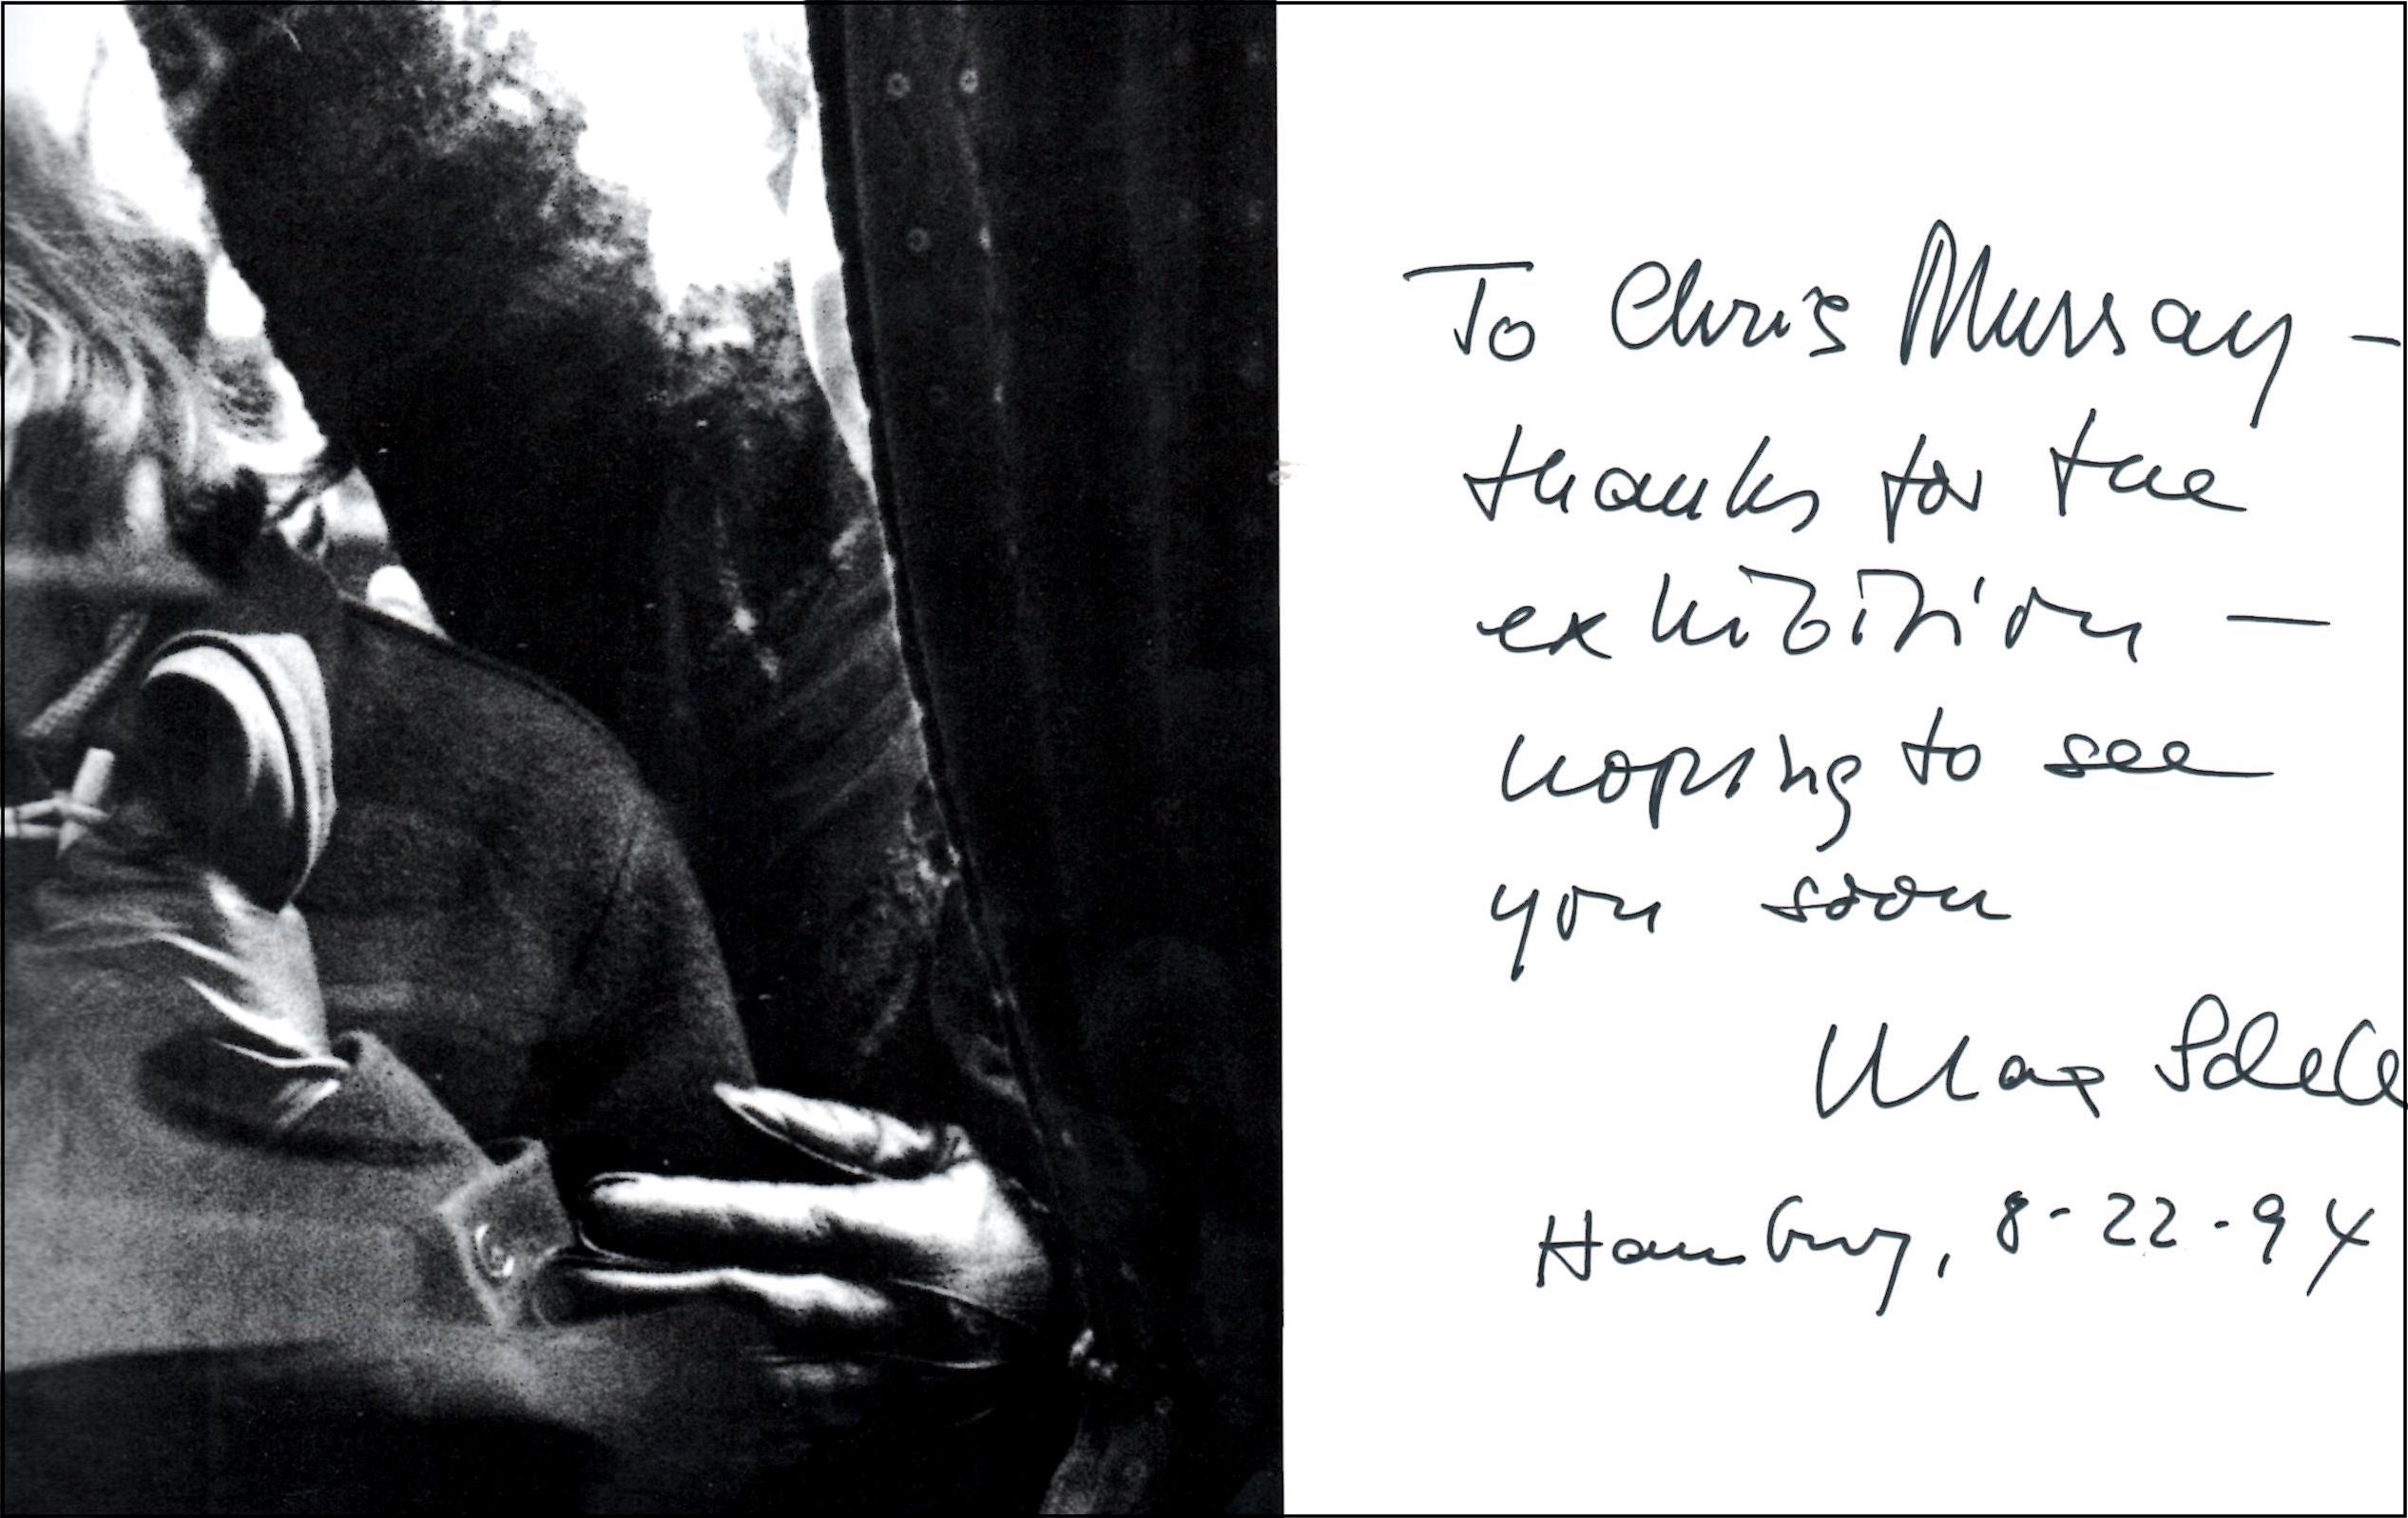 To Chris Murray -
thanks for the
exhibition -
hoping to see
you soon
Max Schele
Hamburg, 8-22-94